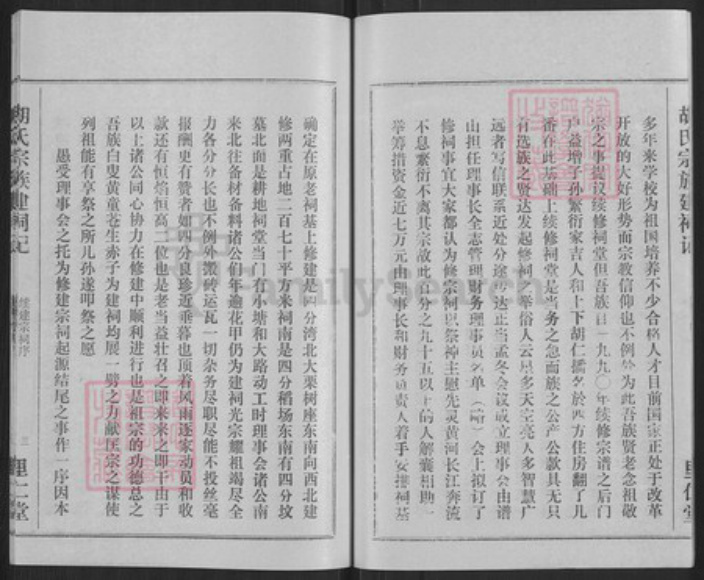 胡氏宗族建祠记
里仁堂
多年来学校为祖国培养不少合格人才目前国家正处于改革
开放的大好形势而宗教信仰也不例外为此吾族贤老念祖敬
宗之事提议续修祠堂但吾族自一九九〇年续修宗谱之后门
户益增子孙繁衍家吉人和上下胡仁播名於四方住房翻了几
番在此基础上续修祠堂是当务之急而族之公产公款其无只
有选族之贤达发起修祠之举俗人云星多天空亮人多智慧广
远者写信联系近处分途传达正当孟冬会议成立理事会由谱
山担任理事长全志管理财务理事员名单（略）会上拟订了
修祠事宜大家都认为修宗祠以祭神主慰先灵黄河长江奔流
不息繁衍不离其宗故此百分之九十五以上的人解囊相助一
举筹措资金近七万元由理事长和财务负责人着手安排祠基
确定在原老祠基上修建是四分湾北大栗树座东南向西北建
修两重占地二百七十平方米祠南是四分稻场东南有四分坟
墓北面是耕地祠堂当门有小塘和大路动工时理事会诸公南
来北往备材备料诸公们年逾花甲仍为建祠光宗耀祖竭尽全
力各分分长也不例外搬砖运瓦一切杂务尽职尽能不投丝毫
报酬更有赞者如四分良珍近垂暮也顶着风雨逐家动员和收
款还有恒焰恒高二位也是老当益壮召之即来来之即干由于
以上诸公同心协力在修建中顺利进行也是祖宗的功德总之
吾族白叟黄童苍生赤子为建祠均展一劈之力献匡宗之谋使
列祖能有享祭之所儿孙遂叩祭之愿
愚受理事会之托为修建宗祠起源结尾之事作一序因本
胡氏宗族建祠记
续建宗祠序
三
里仁堂
FamilySearch